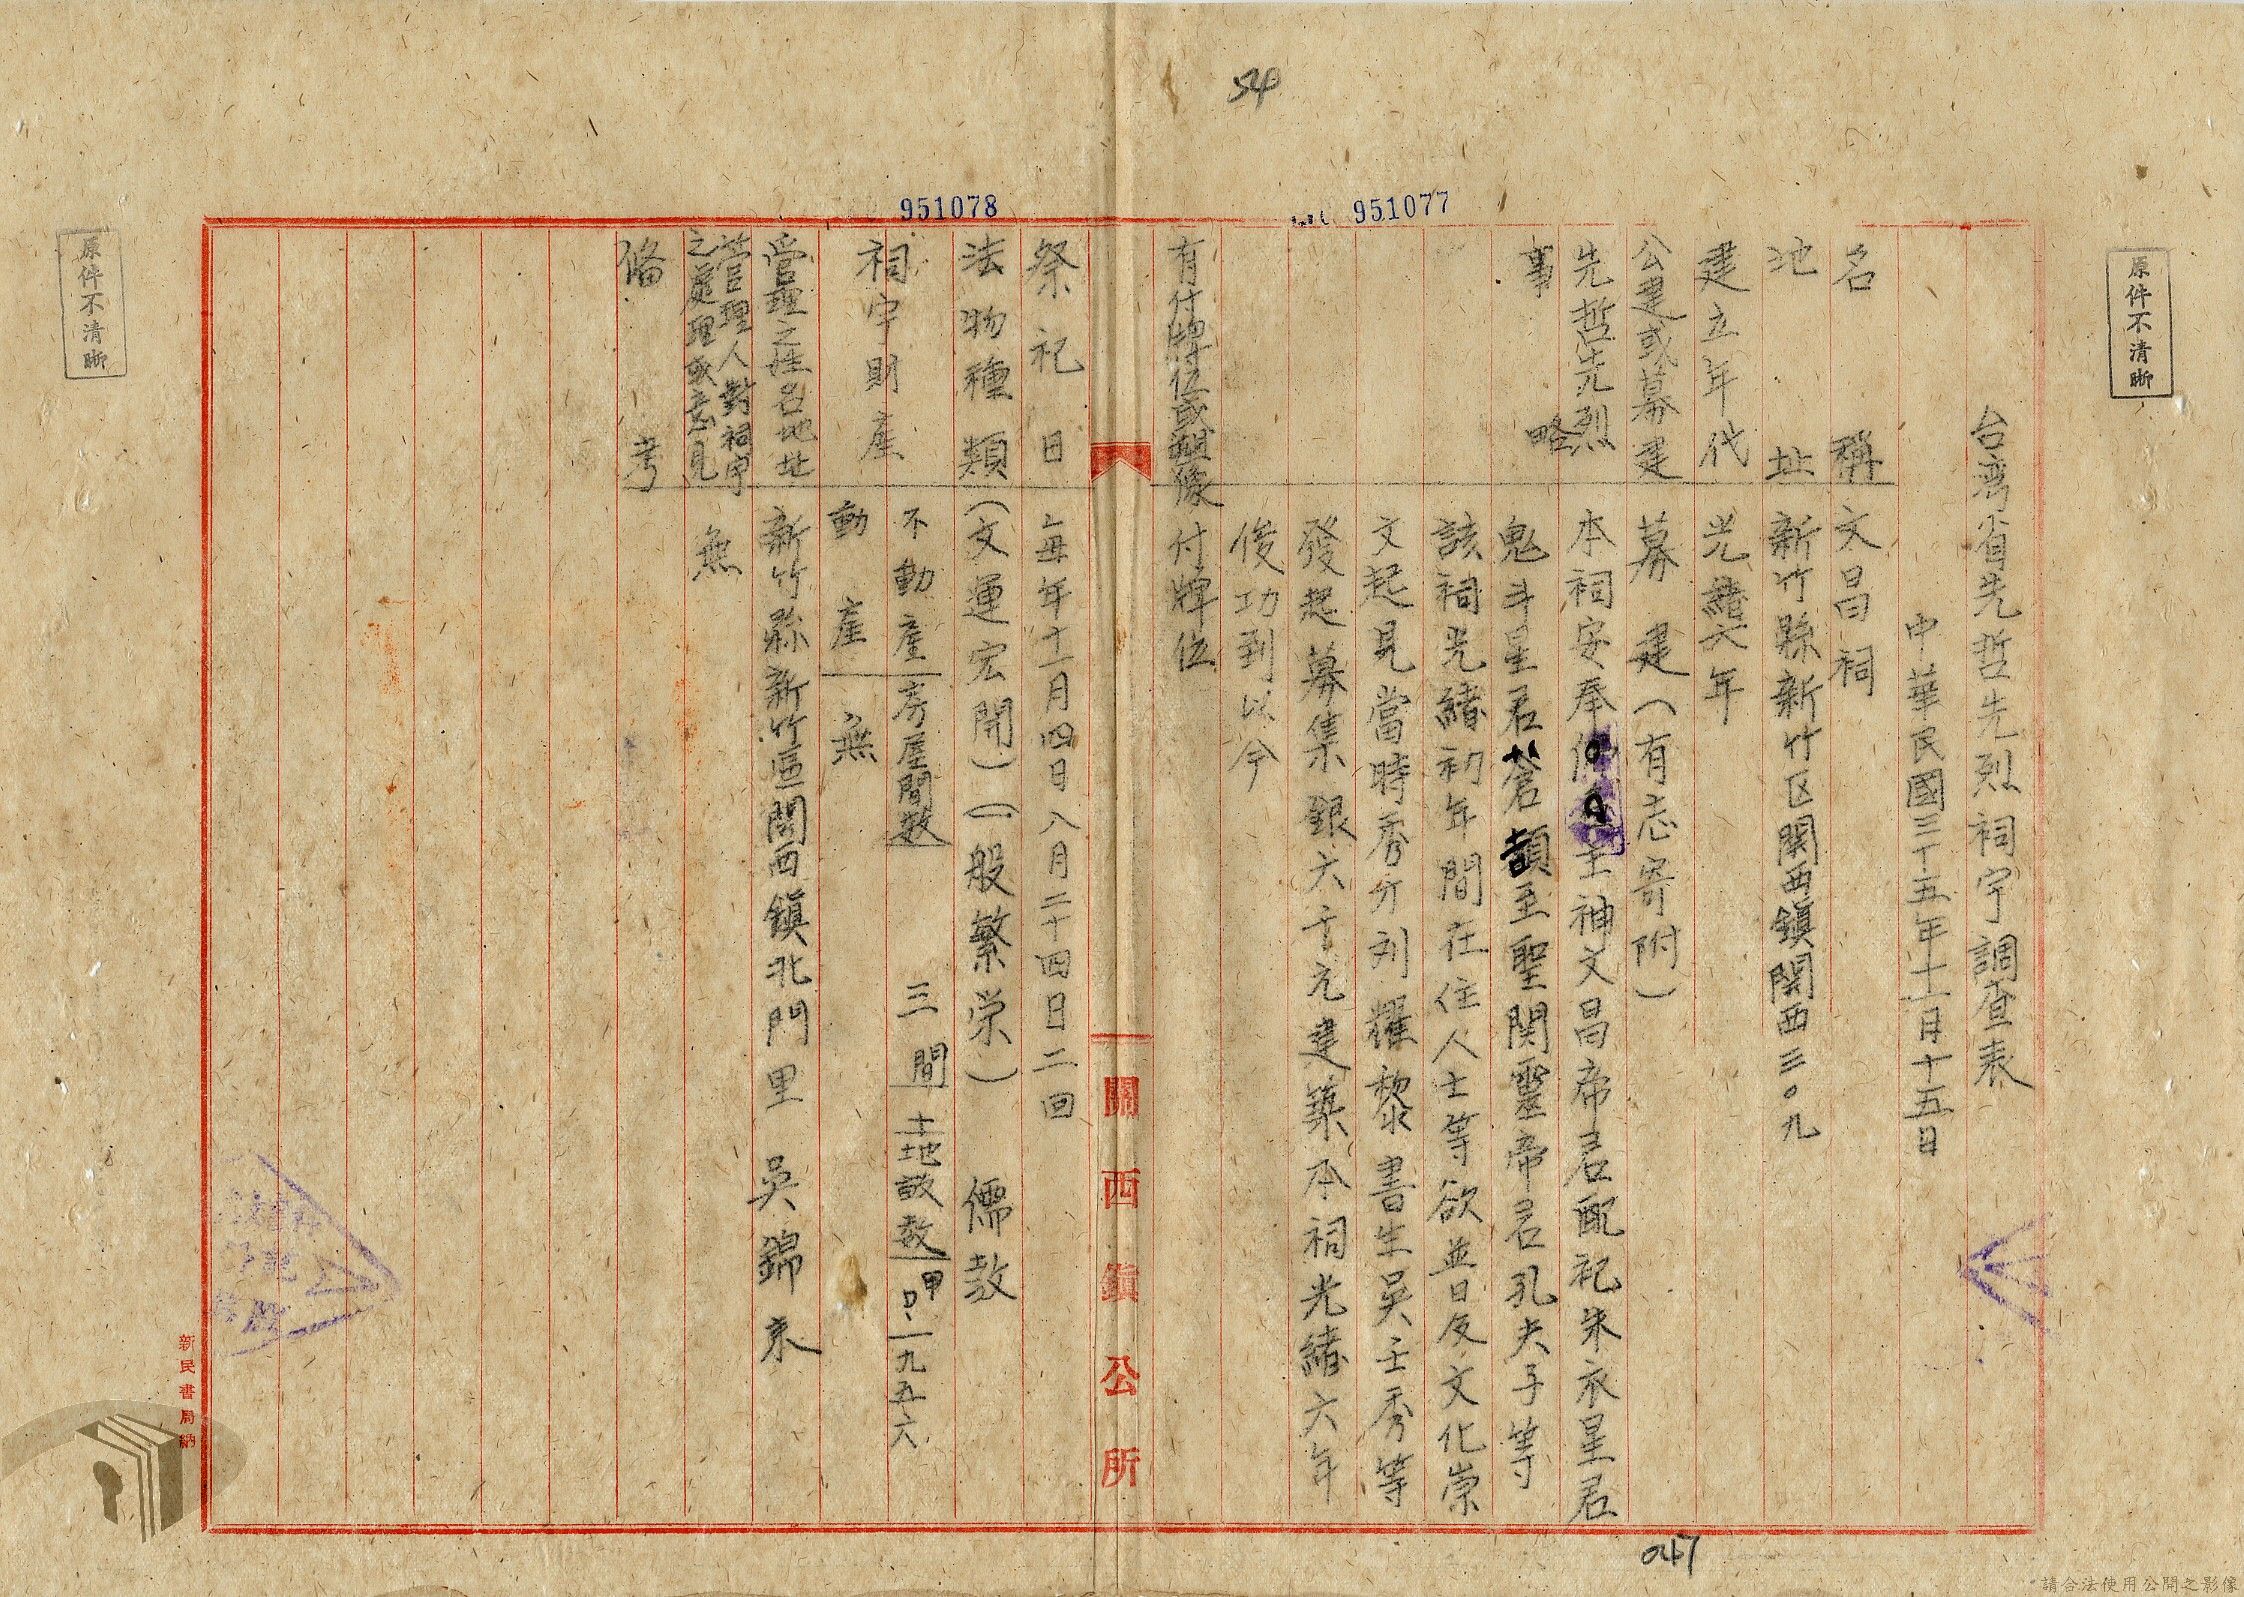 54
951077
951078
原件不清晰
原件不清晰
台湾省先哲先烈祠宇調查表
中華民國三十五年十一月十五日
名稱 文昌祠
地址 新竹縣新竹区関西鎮関西三〇九
建立年代 光緒六年
公建或募建 募建(有志寄附)
先哲先烈 本祠安奉 主神文昌帝君配祀朱衣星君
事略 魁斗星君 蒼頡至聖関靈帝君孔夫子等
該祠光緒初年間在住人士等欲並日反文化崇
文起見當時秀才刘耀黎書生吳壬秀等
發起募集銀六千元建築本祠光緒六年
俊功到以今
有付牌位或塑像 付牌位
關西鎮公所
祭祀日 每年十一月四日八月二十四日二回
法物種類 (文運宏開)(一般繁栄) 儒教
祠宇財產 不動產 房屋間数 三間 土地敌数 甲 0.一九五六
動產 無
管理之姓名地址 新竹縣新竹區関西鎮北門里 吳錦來
管理人對祠宇
之處理意見 無
備考
新民書局納
047
請合法使用公開之影像